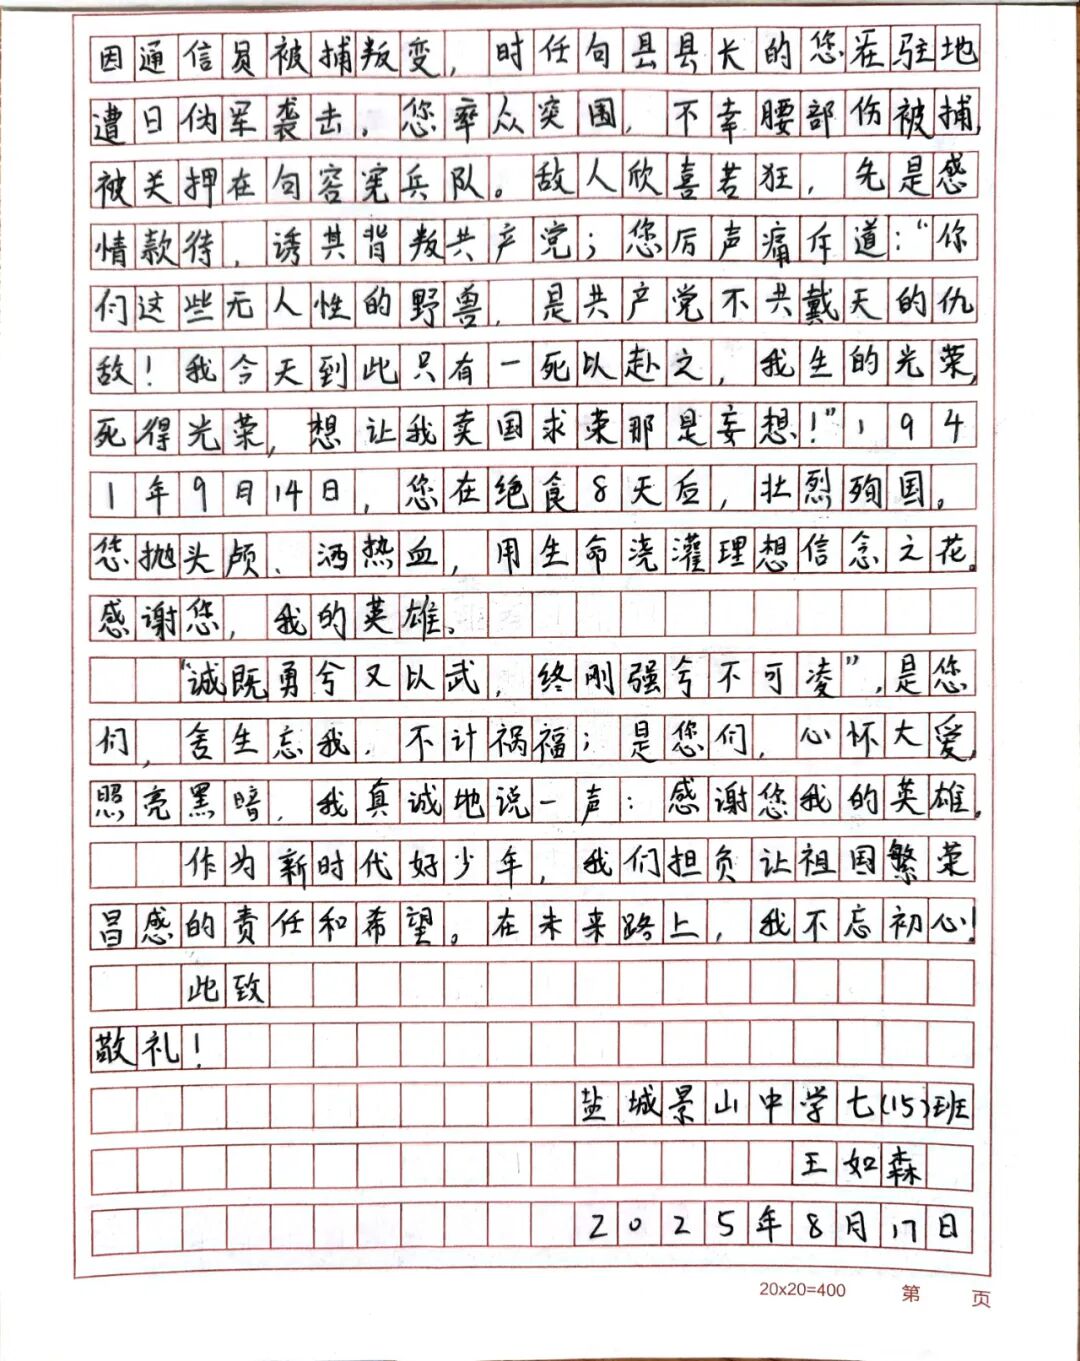 因通信员被捕叛变，时任句县县长的您在驻地
遭日伪军袭击，您率众突围，不幸腰部伤被捕，
被关押在句容宪兵队。敌人欣喜若狂，先是感
情款待，诱其背叛共产党；您厉声痛斥道：“你
们这些无人性的野兽，是共产党不共戴天的仇
敌！我今天到此只有一死以赴之，我生的光荣，
死得光荣，想让我卖国求荣那是妄想！”194
1年9月14日，您在绝食8天后，壮烈殉国。
您抛头颅、洒热血，用生命浇灌理想信念之花。
感谢您，我的英雄。
“诚既勇兮又以武，终刚强兮不可凌”，是您
们，舍生忘我，不计祸福；是您们，心怀大爱，
照亮黑暗，我真诚地说一声：感谢您我的英雄。
作为新时代好少年，我们担负让祖国繁荣
昌感的责任和希望。在未来路上，我不忘初心！
此致
敬礼！
盐城景山中学七(15)班
王如森
2025年8月17日
20x20=400 第 页